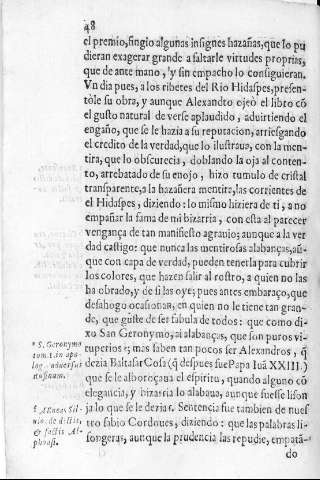 48
el premio, fingio algunas insignes hazañas, que lo pu
dieran exagerar grande a faltarle virtudes proprias,
que de ante mano, y sin empacho lo consiguieran.
Vn dia pues, a los ribetes del Rio Hidaspes, presen-
tòle su obra, y aunque Alexandro ojeò el libro cõ
el gusto natural de verse aplaudido, aduirtiendo el
engaño, que se le hazia a su reputacion, arriesgando
el credito de la verdad, que lo ilustraua, con la men-
tira, que lo obscurecia, doblando la oja al conten-
to, arrebatado de su enojo, hizo tumulo de cristal
transparente, a la hazañera mentira, las corrientes de
el Hidaspes, diziendo: lo mismo hiziera de ti, a no
empañar la fama de mi bizarria, con esta al parecer
vengança de tan manifiesto agrauio; aunque a la ver
dad castigo: que nunca las mentirosas alabanças, aũ-
que con capa de verdad, pueden tenerla para cubrir
los colores, que hazen salir al rostro, a quien no las
ha obrado, y de si las oye; pues antes embaraço, que
desahogo ocasionan, en quien no le tiene tan gran-
de, que guste de ser fabula de todos: que como di-
xo San Geronymo, ai alabanças, que son puros vi-
tuperios; mas saben tan pocos ser Alexandros, q̃
dezia Baltasar Cosa (q̃ despues fue Papa Iuã XXIII.)
que se le alboroçaua el espiritu, quando alguno cõ
elegancia, y bizarria lo alabaua, aunque fuesse lison
ja lo que se le dezia. Sentencia fue tambien de nues
tro sabio Cordoues, diziendo: que las palabras li-
songeras, aunque la prudencia las repudie, empatã-
do
S. Geronymo
tom. 1. in apo
log. aduersus
Rufinum.
Æneas Sil-
uio: de dictis,
& factis Al-
phonsi.